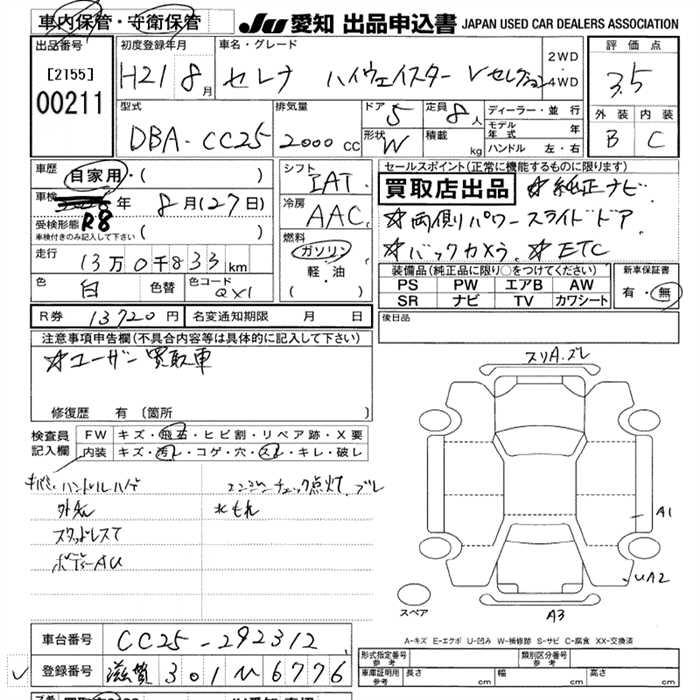 車内保管・守衛保管
JU 愛知 出品申込書 JAPAN USED CAR DEALERS ASSOCIATION
出品番号
[2155]
00211
初度登録年月
H21 8月
車名・グレード
セレナ ハイウェイスター Vセレクション
2WD
・
4WD
評価点
3.5
外装 内装
B C
型式
DBA-CC25
排気量
2000 CC
ドア 5
形状 W
定員 8人
積載 kg
ディーラー・並行
モデル年式 年
ハンドル 左・右
車歴 自家用・( )
車検 R8年 8月(27日)
受検形態
車検付きのみ記入して下さい ( )
走行 13万0千833km
色 白 色替 色コード QX1
シフト IAT
冷房 AAC
燃料
ガソリン
軽・油
( )
セールスポイント(正常に機能するものに限ります)
買取店出品 ☆純正ナビ
☆両側パワースライドドア
☆バックカメラ ☆ETC
装備品(純正品に限り○をつけてください)
PS PW エアB AW
SR ナビ TV カワシート
新車保証書
有・無
R券 13720円 名変通知期限 月 日
後日品
注意事項申告欄(不具合内容等は具体的に記入して下さい)
☆ユーザー買取車
修復歴 有(箇所 )
検査員記入欄
FW キズ・飛石・ヒビ割・リペア跡・X要
内装 キズ・汚レ・コゲ・穴・スレ・キレ・破レ
ハンドルハゲ エンジンチェック点灯、ブレ
水もれ
スタッドレスT
ボディーAU
スリA.ズレ
A1
UA2
A3
スペア
A-キズ E-エクボ U-凹み W-補修跡 S-サビ C-腐食 XX-交換済
車台番号 CC25-292312
登録番号 滋賀 301 6776
形式指定番号 参考
類別区分番号 参考
車庫証明用 参考 長さ cm 幅 cm 高さ cm